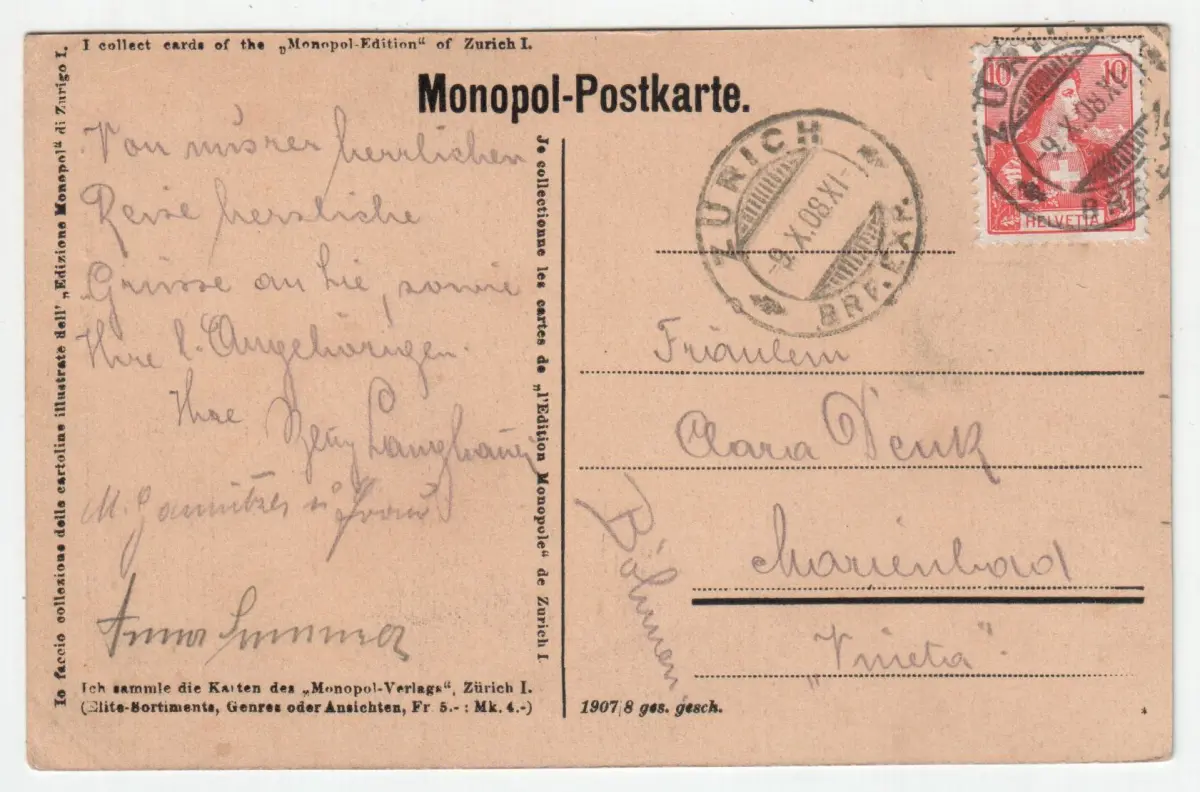 I collect cards of the „Monopol-Edition“ of Zurich I.
Io faccio collezione delle cartoline illustrate dell' „Edizione Monopol“ di Zurigo I.
Monopol-Postkarte.
Von unsrer herrlichen
Reise herzliche
Grüsse an Sie, sowie
Ihre l. Angehörigen.
Ihre
M. u Frau
Anna Sommer
Ich sammle die Karten des „Monopol-Verlags“, Zürich I.
(Elite-Sortiments, Genres oder Ansichten, Fr. 5.- : Mk. 4.-)
Je collectionne les cartes de „l'Edition Monopole“ de Zurich I.
ZÜRICH
-9.X.08.XI-
BRF. EXP.
10 10
HELVETIA
ZÜRICH
-9.X.08.XI
Fräulein
Clara Denk
Marienbad
„Vineta“
Böhmen
1907/8 ges. gesch.